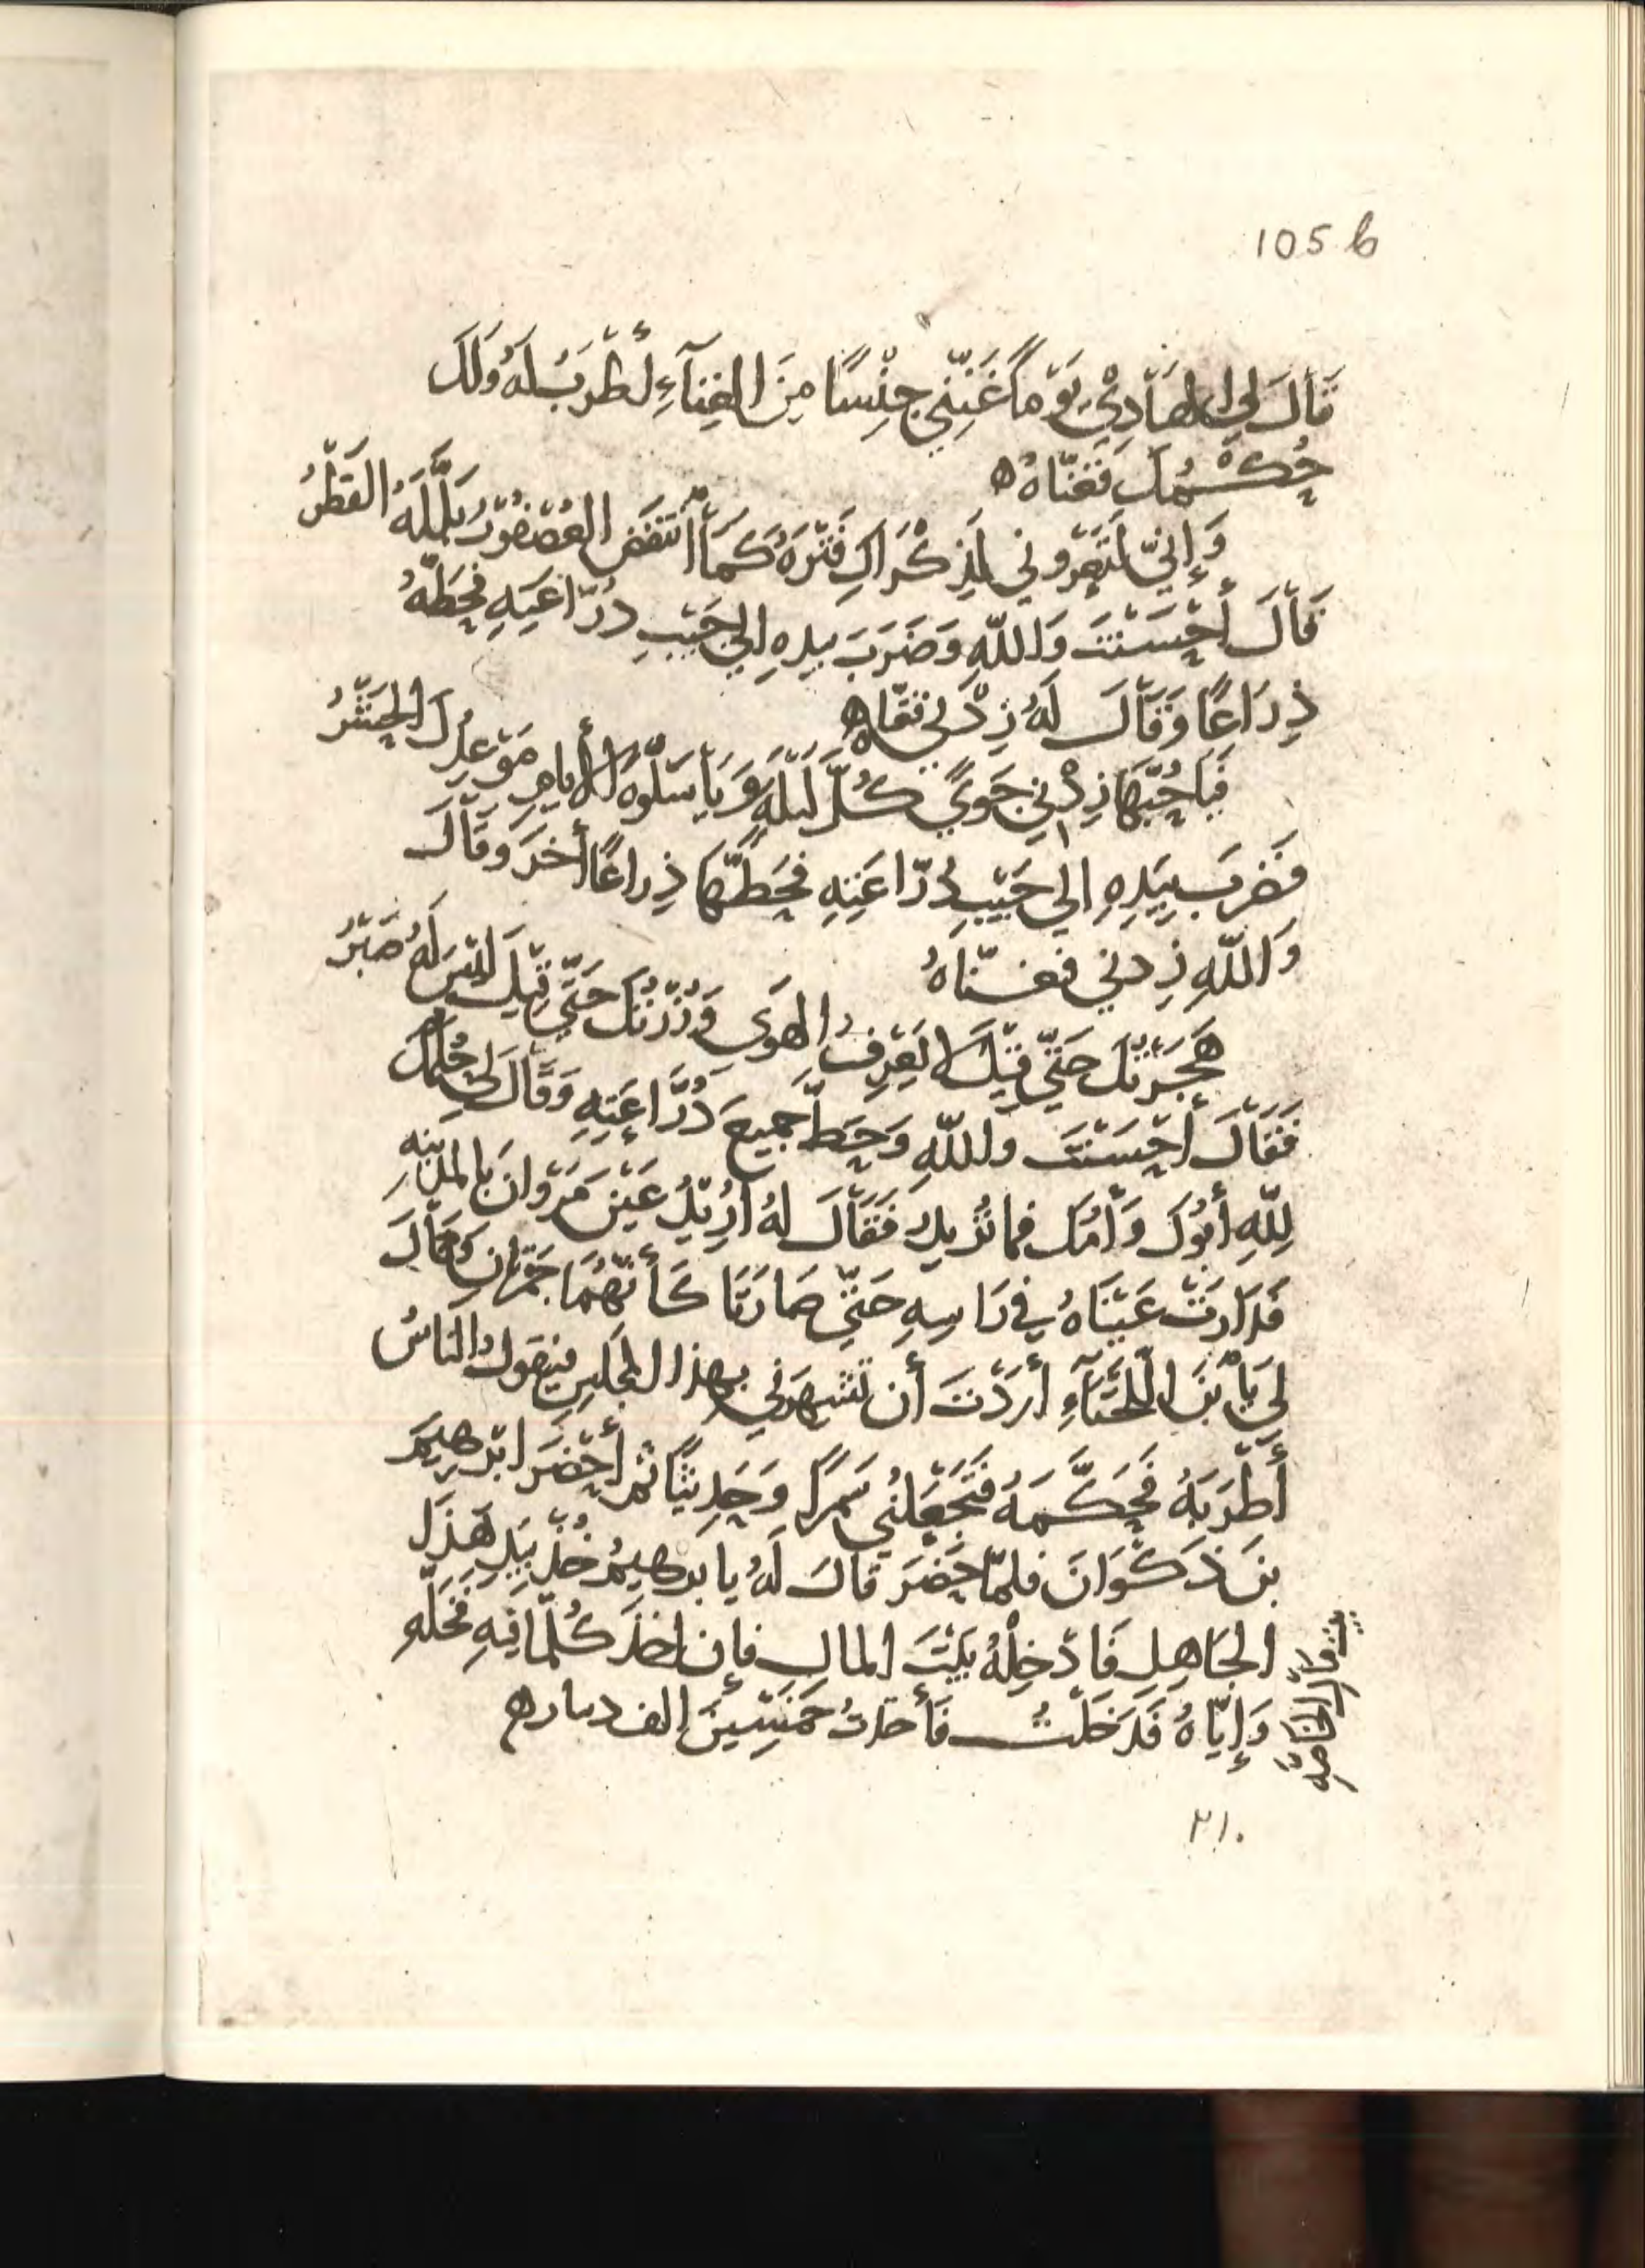 105 b
قَالَ لِي الهَادِيْ يَوْمًا غَنِّنِي جِنْسًا مِنَ الغِنَآءِ أَطْرَبُ لَهُ وَلَكَ
حُكْمُكَ فَغَنَّاهُ ه
وَإِنِّي لَتَعْرُونِي لِذِكْرَاكِ فَتْرَةٌ كَمَا اُنْتَفَضَ العُصْفُوْرُ بَلَّلَهُ القَطْرُ
فَقَالَ أَحْسَنْتَ وَاللّهِ وَضَرَبَ بيدهِ الي جَيْبِ دُرَّاعَتِهِ فحَطَّهُ
ذِرَاعًا وَقَالَ لَهُ زِدْني فغنّاه
فَيَا حُبَّهَا زِدْنِي جَوًي كُلَّ لَيْلَةٍ وَيَا سَلْوَةَ الأيامِ مَوْعِدُكَ الحَشْرُ
فَضَربَ بِيَدِهِ الي جَيْبِ دُرّاعَتِهِ فحَطَّهَا ذِراعًا أخَرَ وَقَالَ
وَاللّهِ زِدني فغنّاهُ
هَجَرْتُكَ حَتّي قِيْلَ لا يَعْرِفُ الهَوَى وَزُرْتُكَ حَتَّي قِيْلَ لَيْسَ لَهُ صَبْرُ
فَقَالَ أَحْسَنْتَ واللّهِ وَحَطَّ جميعَ دُرَّاعَتِهِ وَقَالَ لِي حُكْمُكَ
لِلّهِ أَبُوكَ وَأُمُّكَ فما تُريدُ فَقَالَ لهُ أُرِيْدُ عَيْنَ مَرْوَانَ بالمدينهِ
فَدَارَتْ عَيْنَاهُ فِي رَاسِهِ حَتّي صَارَتَا كَأَنّهُمَا جَمْرَتان وَقَالَ
لِي يَا ابْنَ اللّخْنَآءِ أَرَدْتَ أن تشهرَني بهذا المجلسِ فيَقولُ الناسُ
أَطْرَبَهُ فَحَكَّمَهُ فَتَجْعَلُنِي سَمَرًا وَحَدِيثًا ثم أَحْضَرَ ابْرهِيمَ
بنَ ذَكْوَانَ فلمّا حَضَرَ قالَ لَهُ يا ابرهيمُ خُذْ بيَدِ هَذَا
الجَاهِلِ فَادْخِلْهُ بَيْتَ المالِ فإن اخذَ كُلَّمَا فِيْهِ فَخَلِّهِ
وَإِيّاهُ فَدَخَلْتُ فأخذتُ خَمْسِينَ الف دينار ه
٢١٠